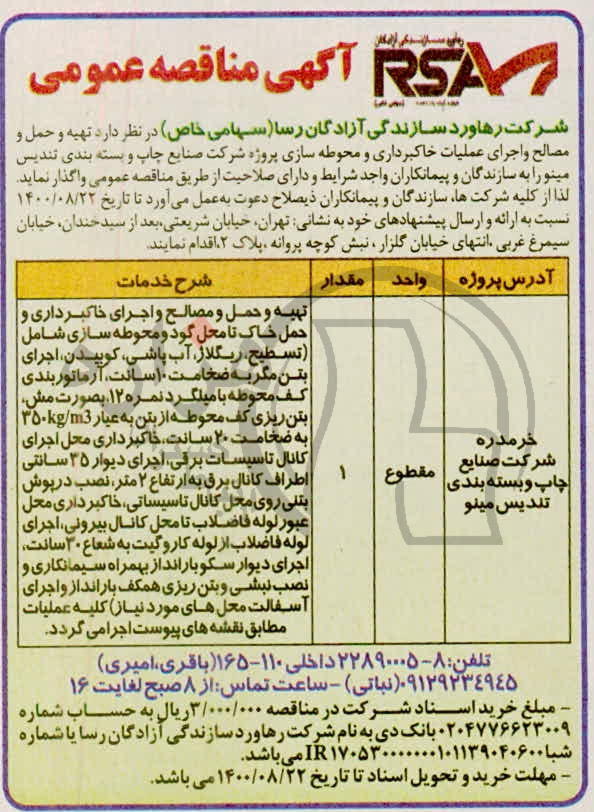 رهآورد سازندگی آزادگان
RSA
(سهامی خاص)
آگهی مناقصه عمومی
شرکت رهاورد سازندگی آزادگان رسا (سهامی خاص) در نظر دارد تهیه و حمل و
مصالح واجرای عملیات خاکبرداری و محوطه سازی پروژه شرکت صنایع چاپ و بسته بندی تندیس
مینو را به سازندگان و پیمانکاران واجد شرایط و دارای صلاحیت از طریق مناقصه عمومی واگذار نماید.
لذا از کلیه شرکت ها، سازندگان و پیمانکاران ذیصلاح دعوت به عمل می آورد تا تاریخ ۱۴۰۰/۰۸/۲۲
نسبت به ارائه و ارسال پیشنهادهای خود به نشانی: تهران، خیابان شریعتی، بعد از سیدخندان، خیابان
سیمرغ غربی، انتهای خیابان گلزار، نبش کوچه پروانه، پلاک ۲، اقدام نمایند.
آدرس پروژه واحد مقدار شرح خدمات
خرمدره
شرکت صنایع
چاپ و بسته بندی
تندیس مینو
مقطوع
۱
تهیه و حمل و مصالح و اجرای خاکبرداری و
حمل خاک تا محل گود و محوطه سازی شامل
(تسطیح، ریگلاژ، آب پاشی، کوبیدن، اجرای
بتن مگر به ضخامت ۱۰ سانت، آرماتوربندی
کف محوطه با میلگرد نمره ۱۲، بصورت مش،
بتن ریزی کف محوطه از بتن به عیار ۳۵۰kg/m3
به ضخامت ۲۰ سانت، خاکبرداری محل اجرای
کانال تاسیسات برقی، اجرای دیوار ۳۵ سانتی
اطراف کانال برق به ارتفاع ۲ متر، نصب درپوش
بتنی روی محل کانال تاسیساتی، خاکبرداری محل
عبور لوله فاضلاب تا محل کانال بیرونی، اجرای
لوله فاضلاب از لوله کاروگیت به شعاع ۳۰ سانت،
اجرای دیوار سکو بارانداز بهمراه سیمانکاری و
نصب نبشی و بتن ریزی همکف بارانداز و اجرای
آسفالت محل های مورد نیاز) کلیه عملیات
مطابق نقشه های پیوست اجرا می گردد.
تلفن: ۸-۲۲۸۹۰۰۰۵ داخلی ۱۱۰-۱۶۵ (باقری، امیری)
۰۹۱۲۹۲۳۴۹۴۵ (نباتی) - ساعت تماس: از ۸ صبح لغایت ۱۶
- مبلغ خرید اسناد شرکت در مناقصه ۳/۰۰۰/۰۰۰ ریال به حساب شماره
۰۲۰۴۷۷۶۶۲۳۰۰۹ بانک دی به نام شرکت رهاورد سازندگی آزادگان رسا یا شماره
شبا IR۱۷۰۵۳۰۰۰۰۰۰۰۱۰۱۱۳۹۰۴۰۶۰۰ می باشد.
- مهلت خرید و تحویل اسناد تا تاریخ ۱۴۰۰/۰۸/۲۲ می باشد.